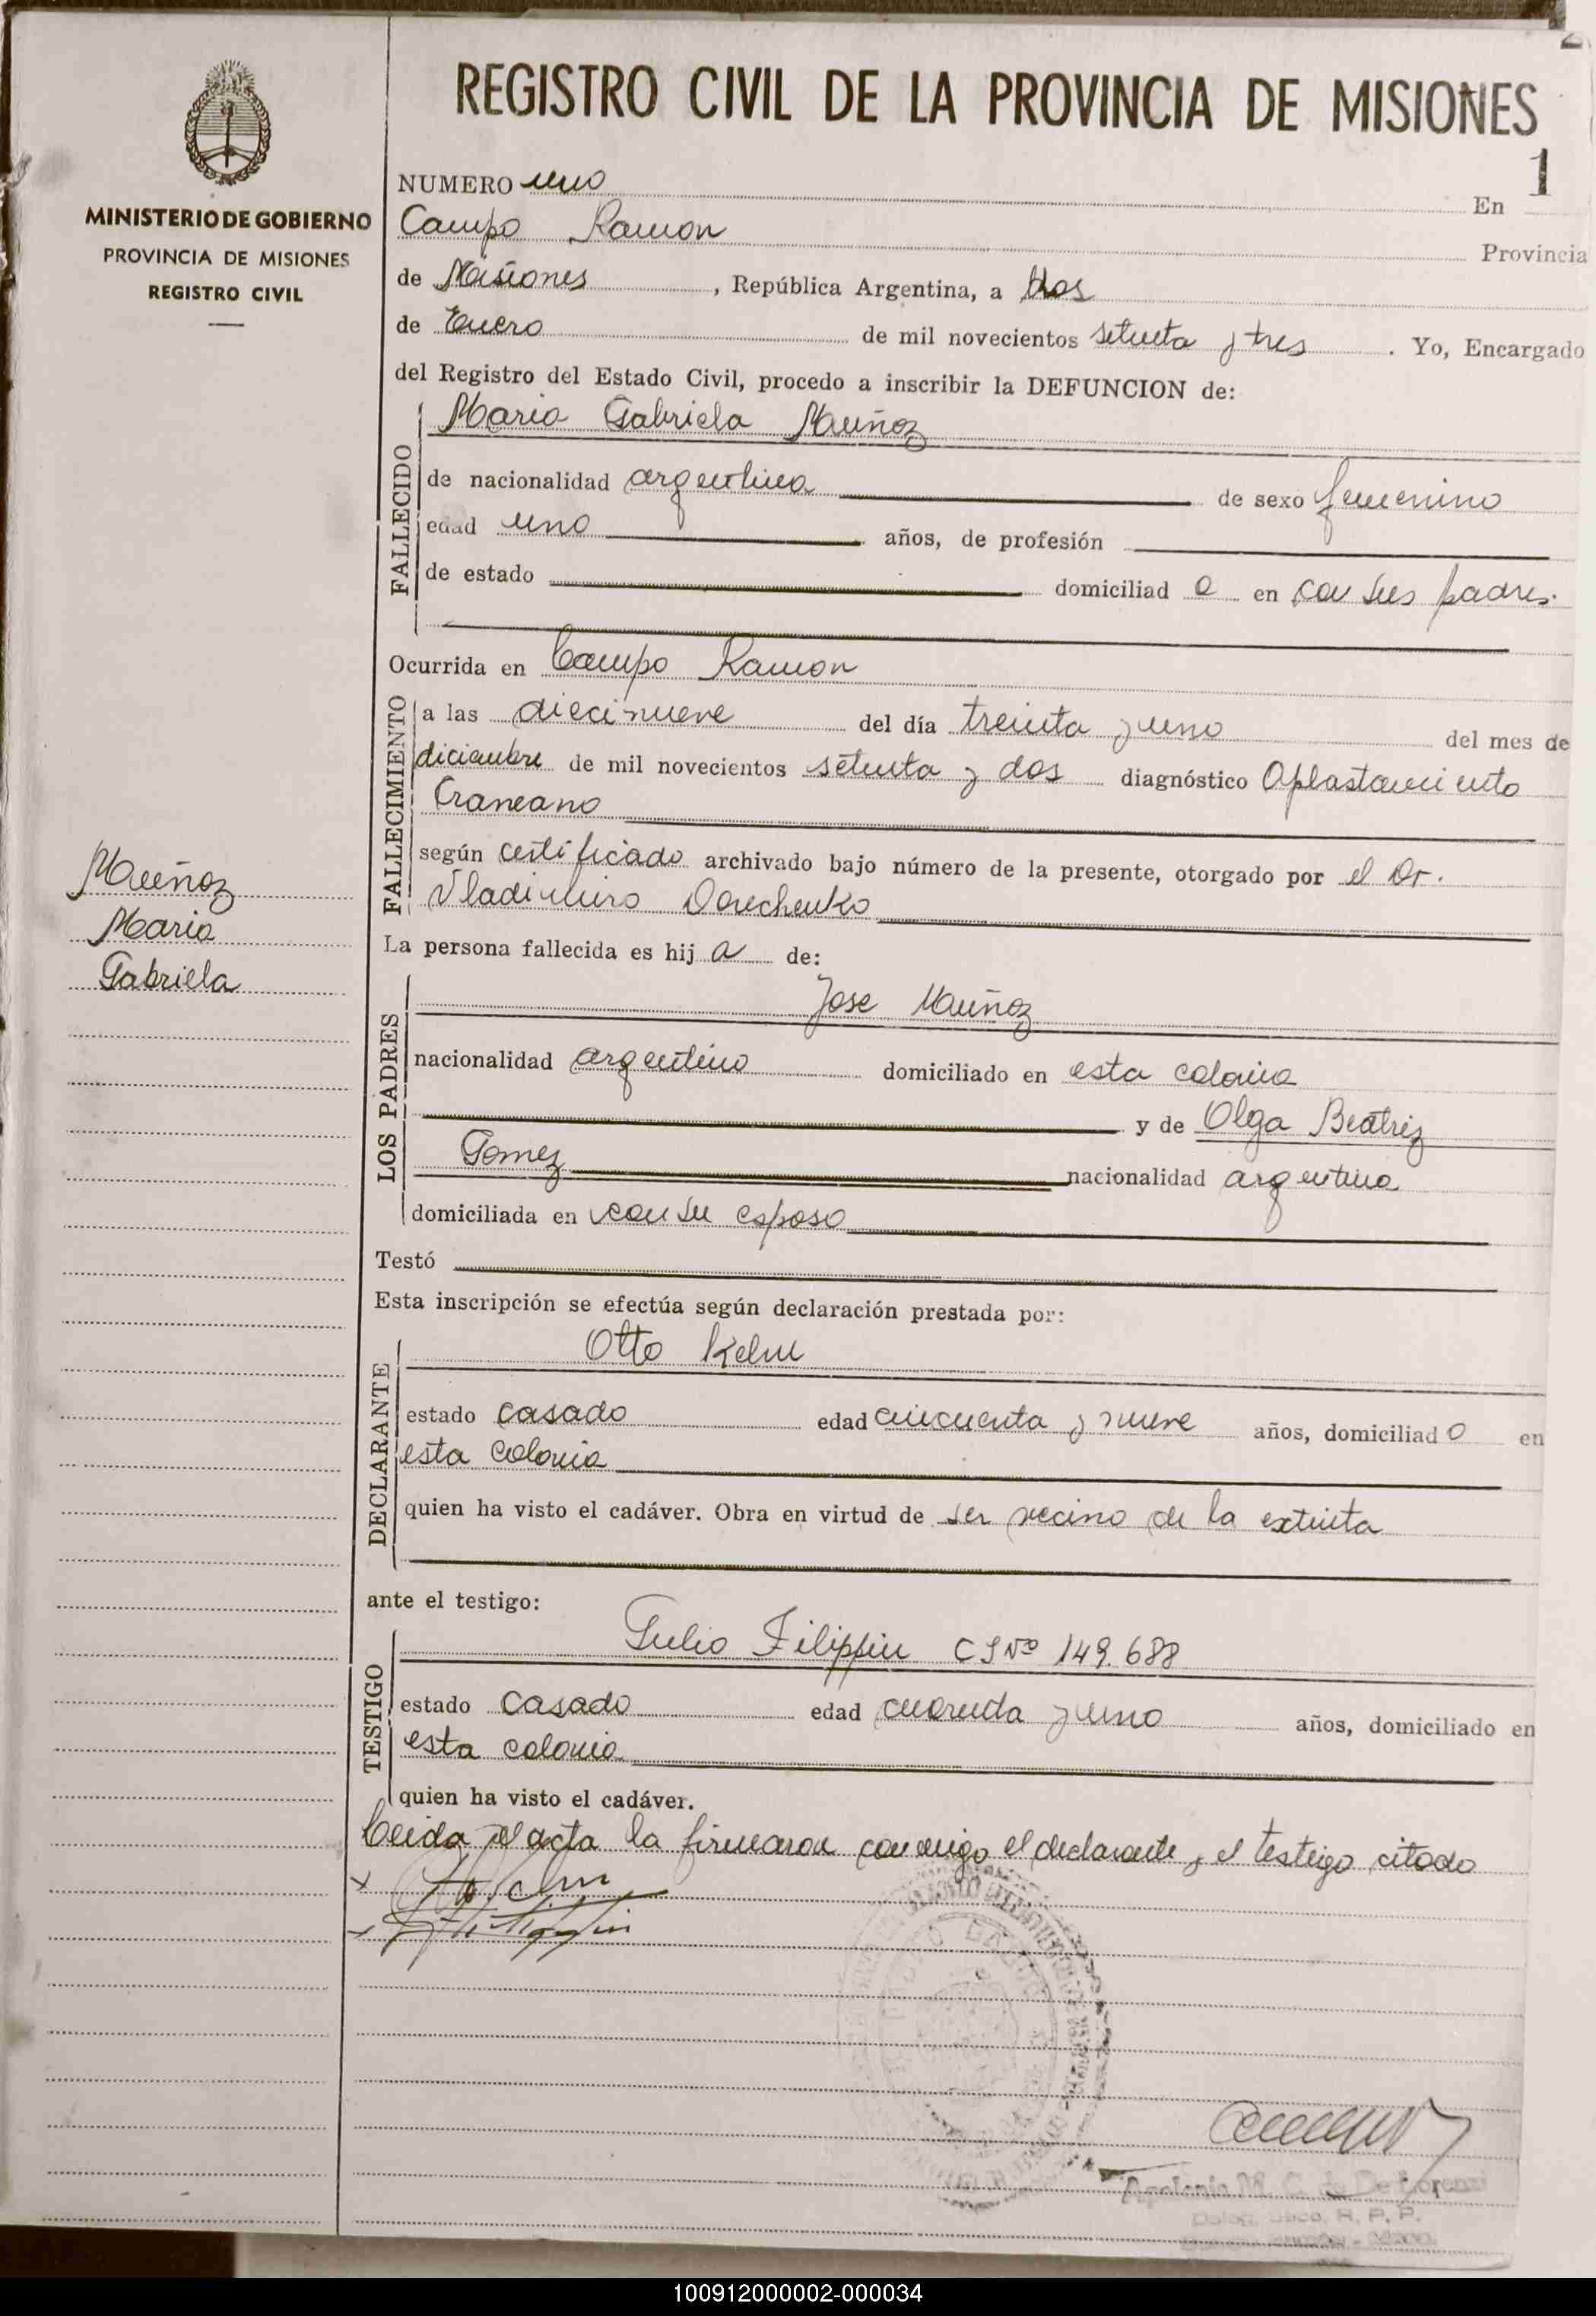 REGISTRO CIVIL DE LA PROVINCIA DE MISIONES
MINISTERIO DE GOBIERNO
PROVINCIA DE MISIONES
REGISTRO CIVIL
1
NUMERO uno En
Campo Ramon Provincia
de Misiones, República Argentina, a dos
de Enero de mil novecientos setenta y tres. Yo, Encargado
del Registro del Estado Civil, procedo a inscribir la DEFUNCION de:
FALLECIDO
Maria Gabriela Muñoz
de nacionalidad argentina de sexo femenino
edad uno años, de profesión
de estado domiciliad a en con sus padres.
Ocurrida en Campo Ramon
FALLECIMIENTO
a las diecinueve del día treinta y uno del mes de
diciembre de mil novecientos setenta y dos diagnóstico Aplastamiento
Craneano
según certificado archivado bajo número de la presente, otorgado por el Dr.
Vladimiro
La persona fallecida es hij a de:
Muñoz
Maria
Gabriela
LOS PADRES
Jose Muñoz
nacionalidad argentino domiciliado en esta colonia
y de Olga Beatriz
Gomez nacionalidad argentina
domiciliada en con su esposo
Testó
Esta inscripción se efectúa según declaración prestada por:
DECLARANTE
Otto Kelm
estado casado edad cincuenta y nueve años, domiciliad o en
esta colonia
quien ha visto el cadáver. Obra en virtud de ser vecino de la extinta
ante el testigo:
TESTIGO
Julio Filippin C I Nº 149.688
estado casado edad cuarenta y uno años, domiciliado en
esta colonia
quien ha visto el cadáver.
Leida el acta la firmaron conmigo el declarante y el testigo citado
Apolonia M. C. de De Lorenzi
100912000002-000034